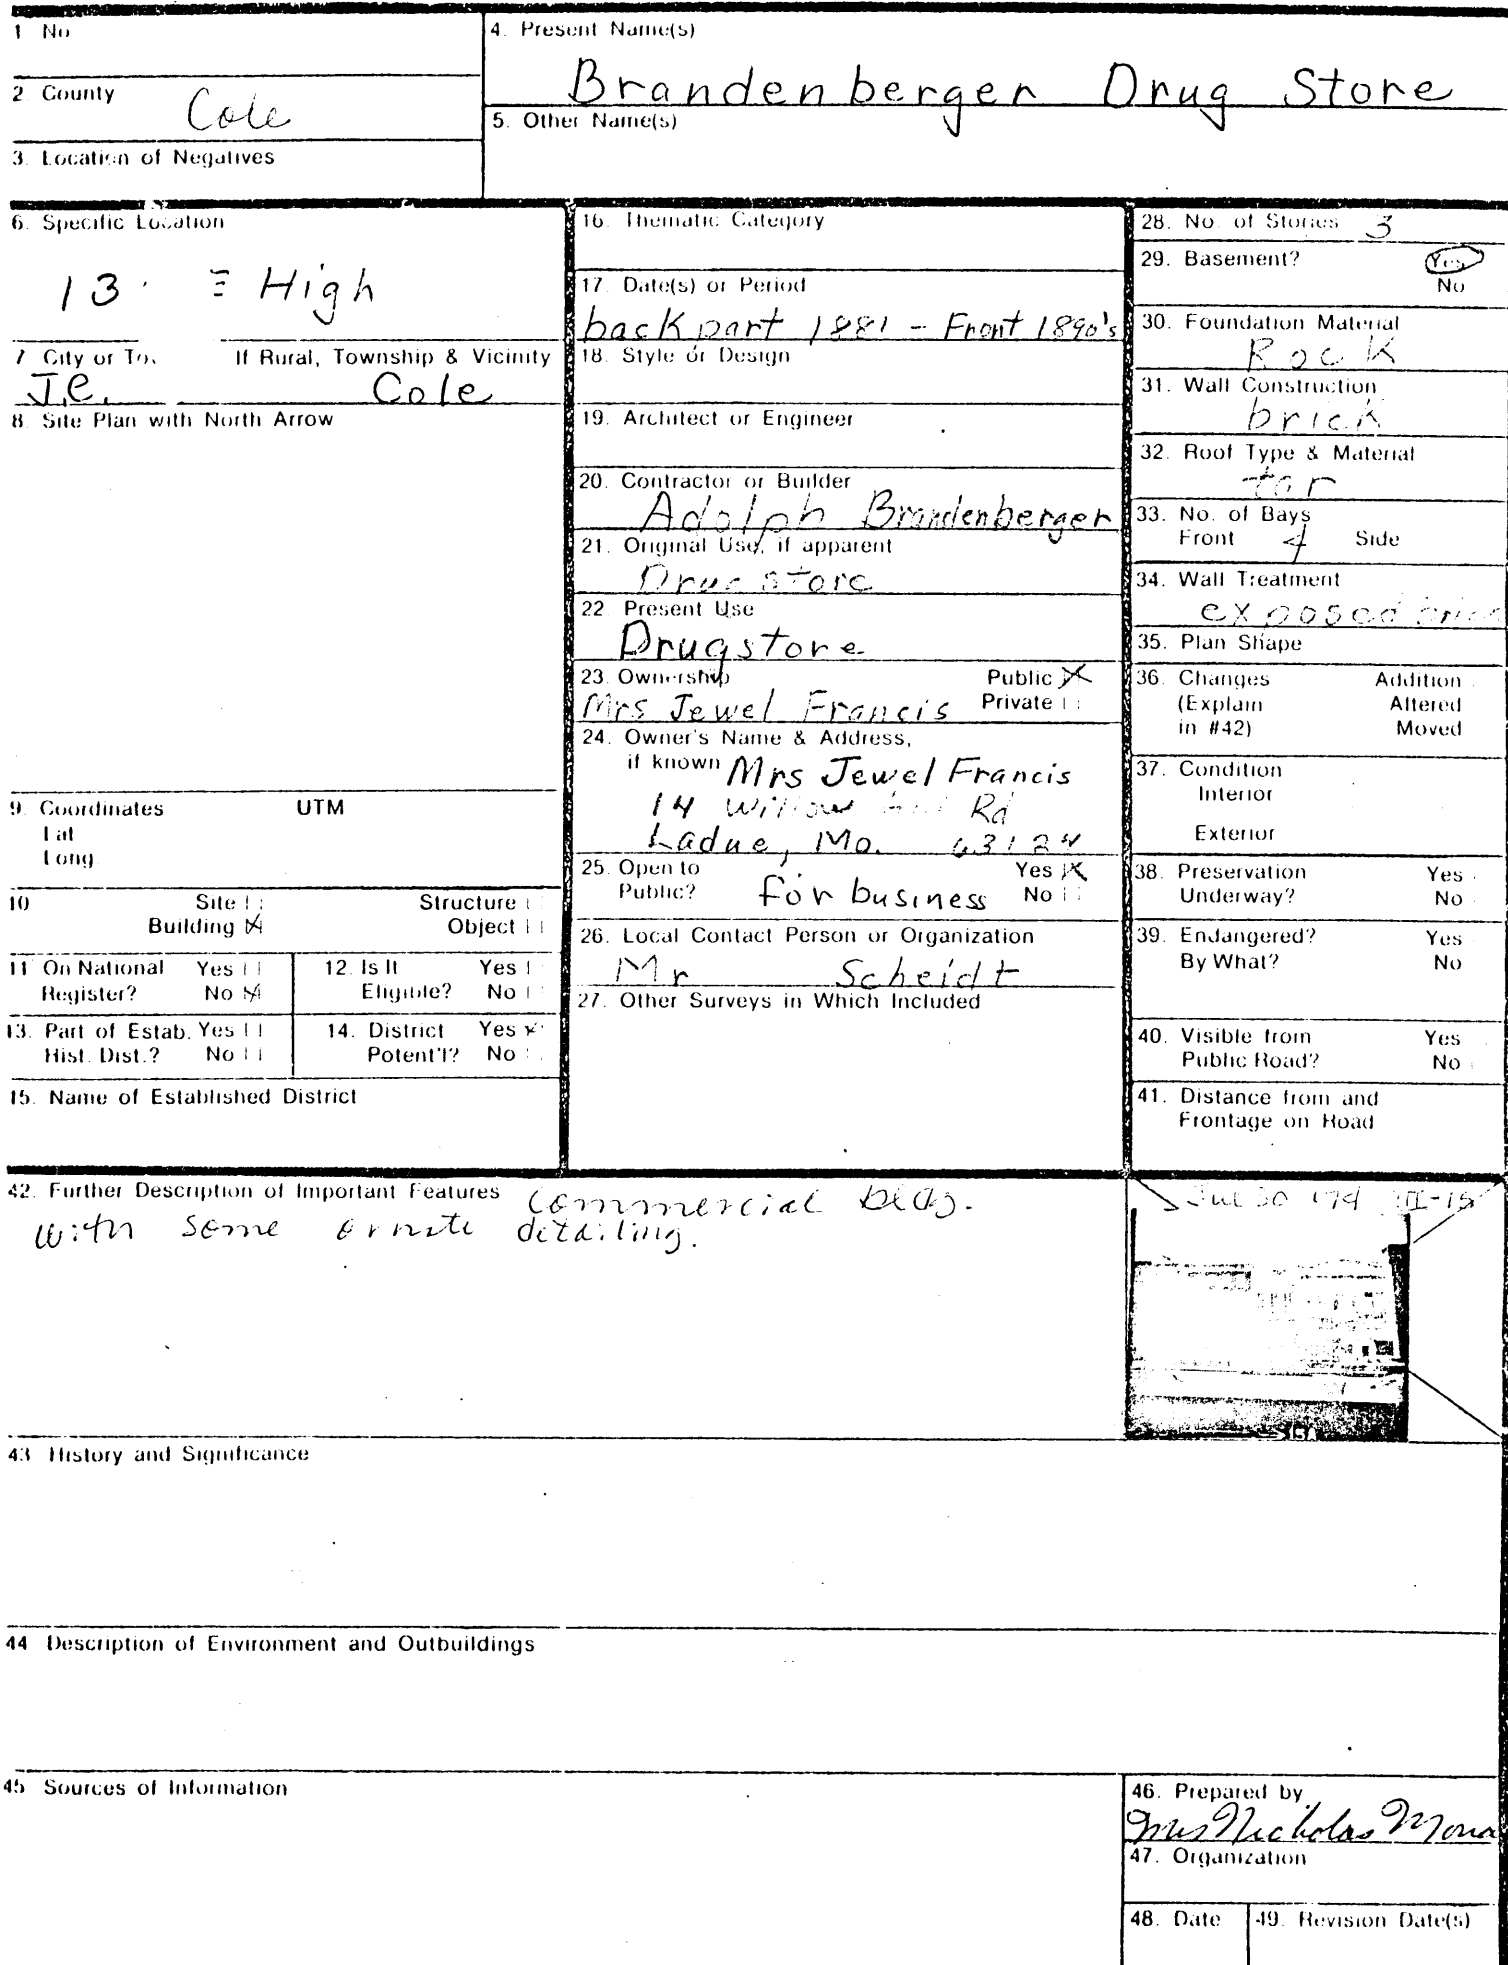 1. No
4. Present Name(s)
Brandenberger Drug Store
2. County
Cole
5. Other Name(s)
3. Location of Negatives
6. Specific Location
13 E High
7. City or To If Rural, Township & Vicinity
J.C. Cole
8. Site Plan with North Arrow
9. Coordinates UTM
Lat
Long
10 Site Structure
Building X Object
11 On National Yes
Register? No X
12. Is It Yes
Eligible? No
13. Part of Estab. Yes
Hist. Dist.? No
14. District Yes X
Potent'l? No
15. Name of Established District
16. Thematic Category
17. Date(s) or Period
back part 1881 - Front 1890's
18. Style or Design
19. Architect or Engineer
20. Contractor or Builder
Adolph Brandenberger
21. Original Use, if apparent
Drug store
22. Present Use
Drugstore
23. Ownership Public X
Mrs Jewel Francis Private
24. Owner's Name & Address,
if known Mrs Jewel Francis
14 Willow Rd
Ladue, Mo. 63124
25. Open to Yes X
Public? for business No
26. Local Contact Person or Organization
Mr Scheidt
27. Other Surveys in Which Included
28. No. of Stories 3
29. Basement? Yes
No
30. Foundation Material
Rock
31. Wall Construction
brick
32. Roof Type & Material
tar
33. No. of Bays
Front 4 Side
34. Wall Treatment
exposed
35. Plan Shape
36. Changes Addition
(Explain Altered
in #42) Moved
37. Condition
Interior
Exterior
38. Preservation Yes
Underway? No
39. Endangered? Yes
By What? No
40. Visible from Yes
Public Road? No
41. Distance from and
Frontage on Road
42. Further Description of Important Features Commercial bldg.
with some ornate detailing.
Jul 30
43 History and Significance
44 Description of Environment and Outbuildings
45 Sources of Information
46. Prepared by
Mrs Nicholas Mona
47. Organization
48. Date 49. Revision Date(s)